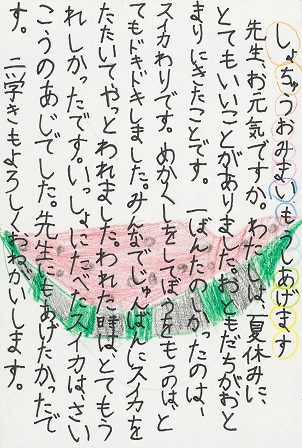 しょちゅうおみまいもうしあげます
先生、お元気ですか。わたしは、夏休みに、
とてもいいことがありました。おともだちがおと
まりにきたことです。一ばんたのしかったのは、
スイカわりです。めかくしをしてぼうをもつのは、と
てもドキドキしました。みんなでじゅんばんにスイカを
たたいてやっとわれました。われた時はとてもう
れしかったです。いっしょにたべたスイカは、さい
こうのあじでした。先生にもあげたかったで
す。二学きもよろしくおねがいします。